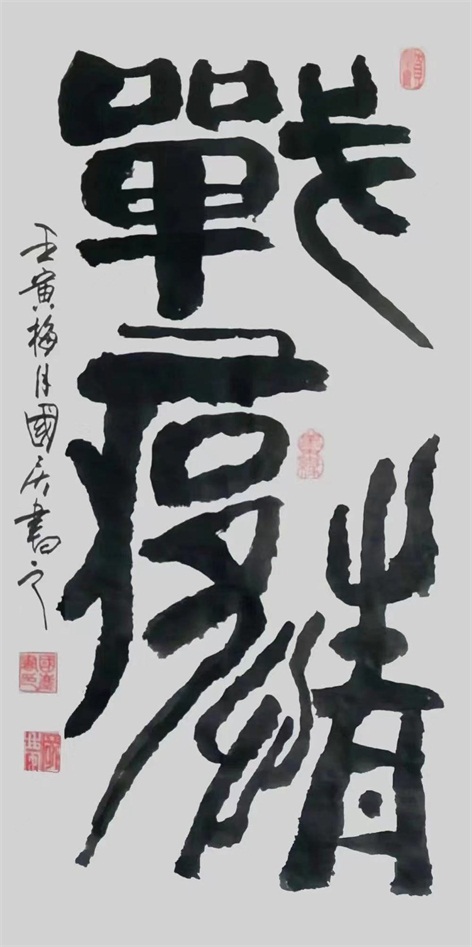 戰疫情
壬寅梅月國庆書之